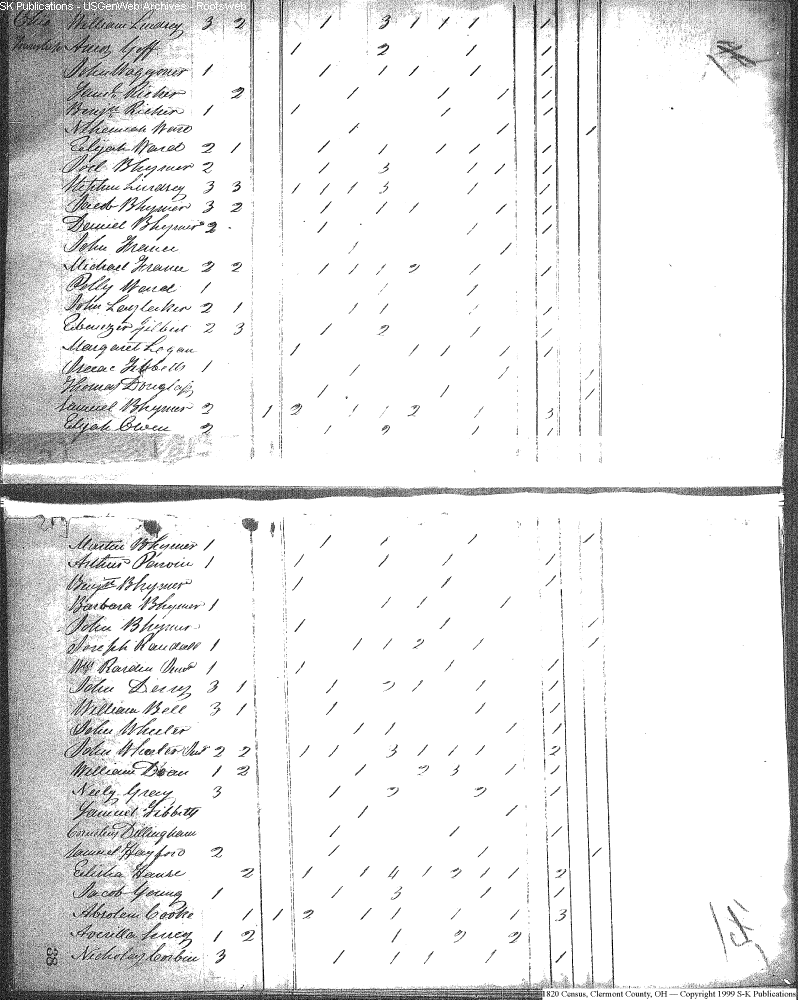 SK Publications - USGenWeb Archives - Rootsweb
Ohio William Lindsey 3 2 1 3 1 1 1 1
Township Amos Goff 1 2 1 1
John Waggoner 1 1 1 1 1 1
Ricker 2 1 1 1 1
Benjn Ricker 1 1 1 1
Nehemiah Ward 1 1 1
Elijah Ward 2 1 1 1 1 1 1
Joel Bhymer 2 1 3 1 1 1
Stephen Lindsey 3 3 1 1 1 3 1 1
Jacob Bhymer 3 2 1 1 1 1 1
Daniel Bhymer 2 1 1 1
John Franee 1 1
Michael Franee 2 2 1 1 1 2 1 1
Polly Ward 1 1 1
John 2 1 1 1 1 1
Ebenezer Gilbert 2 3 1 2 1 1
Margaret Logan 1 1 1 1 1
Isaac Tibbetts 1 1 1 1
Thomas Douglass 1 1 1
Samuel Bhymer 2 1 2 1 1 2 1 3
Elijah Owen 2 1 2 1 1
Martin Bhymer 1 1 1 1 1
Arthur Perrin 1 1 1 1 1
Benjn Bhymer 1 1 1
Barbara Bhymer 1 1 1 1
John Bhymer 1 1 1
Joseph Randall 1 1 1 2 1 1
Wm Rarden Junr 1 1 1 1
John 3 1 1 2 1 1 1
William Bell 3 1 1 1 1
John Wheeler 1 1 1 1
John Wheeler Junr 2 2 1 1 3 1 1 1 2
William Doan 1 2 1 2 3 1 1
Neely Gray 3 1 2 2 1
Samuel Tibbitts 1 1
Cornelius Dillingham 1 1 1
Samuel Hayford 2 1 1 1
Elisha 2 1 1 4 1 2 1 1 2
Jacob Young 1 1 3 1 1
Absolem Cooke 1 1 2 1 1 1 1 3
1 2 1 2 2
Nicholas Corbin 3 1 1 1 1 1
33
1820 Census, Clermont County, OH — Copyright 1999 S-K Publications